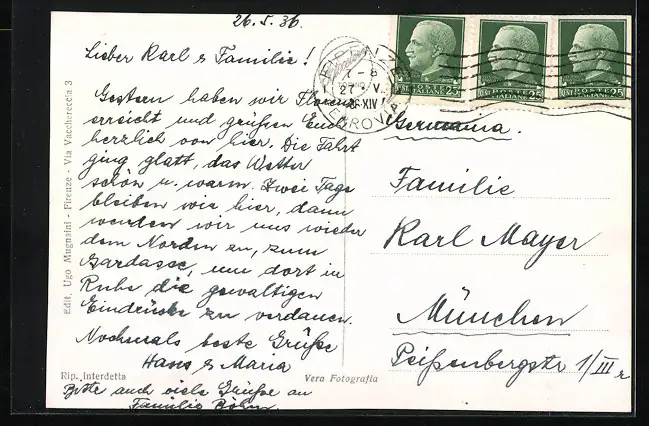 26.5.36.
Lieber Karl & Familie!
Gestern haben wir Florenz
erreicht und grüßen Euch
herzlich von hier. Die Fahrt
ging glatt, das Wetter
schön u. warm. Zwei Tage
bleiben wir hier, dann
wenden wir uns wieder
dem Norden zu, zum
Gardasee, um dort in
Ruhe die gewaltigen
Eindrücke zu verdauen.
Nochmals beste Grüße
Hans & Maria
Bitte auch viele Grüße an
Familie Böhm
Edit. Ugo Mugnaini - Firenze - Via Vacchereccia 3
Rip. Interdetta
Vera Fotografia
FIRENZE
7-8
27 V
XIV
FERROVIA
POSTE ITALIANE 25
POSTE ITALIANE 25
POSTE ITALIANE 25
Germania.
Familie
Karl Mayer
München
Peißenbergstr 1/III r